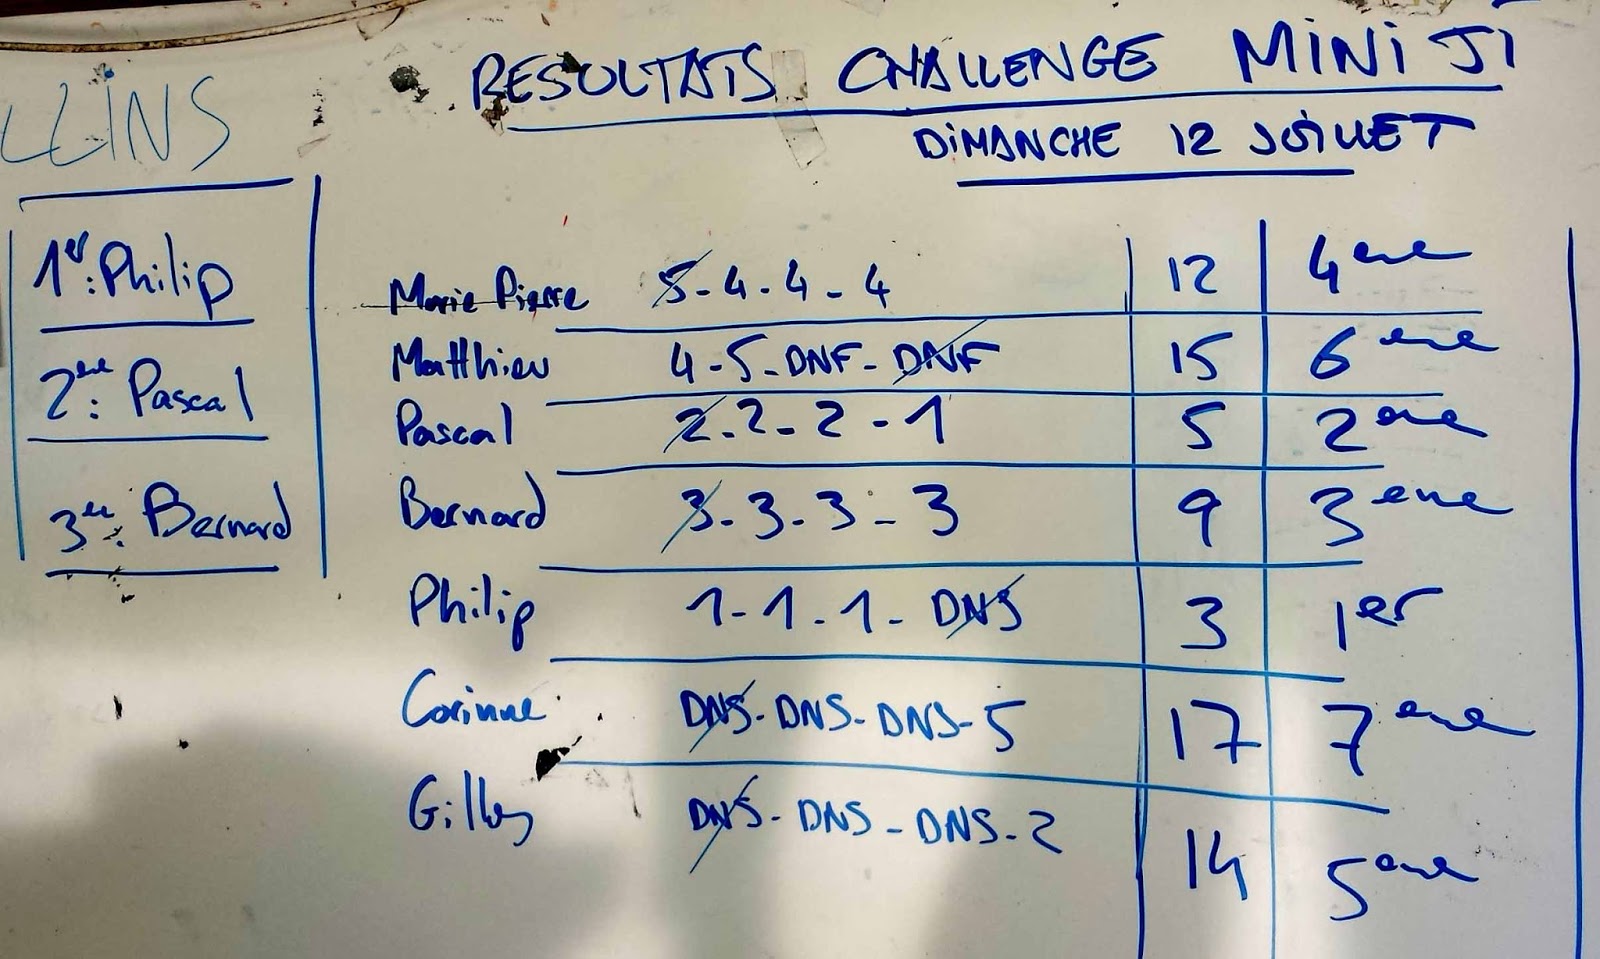 RESULTATS CHALLENGE MINI JI
DIMANCHE 12 JUILLET
LLINS
1er: Philip
2eme: Pascal
3eme: Bernard
Marie Pierre 5-4-4-4 12 4eme
Matthieu 4-5-DNF-DNF 15 6eme
Pascal 2-2-2-1 5 2eme
Bernard 3-3-3-3 9 3eme
Philip 1-1-1-DNS 3 1er
Corinne DNS-DNS-DNS-5 17 7eme
Gilles DNS-DNS-DNS-2 14 5eme